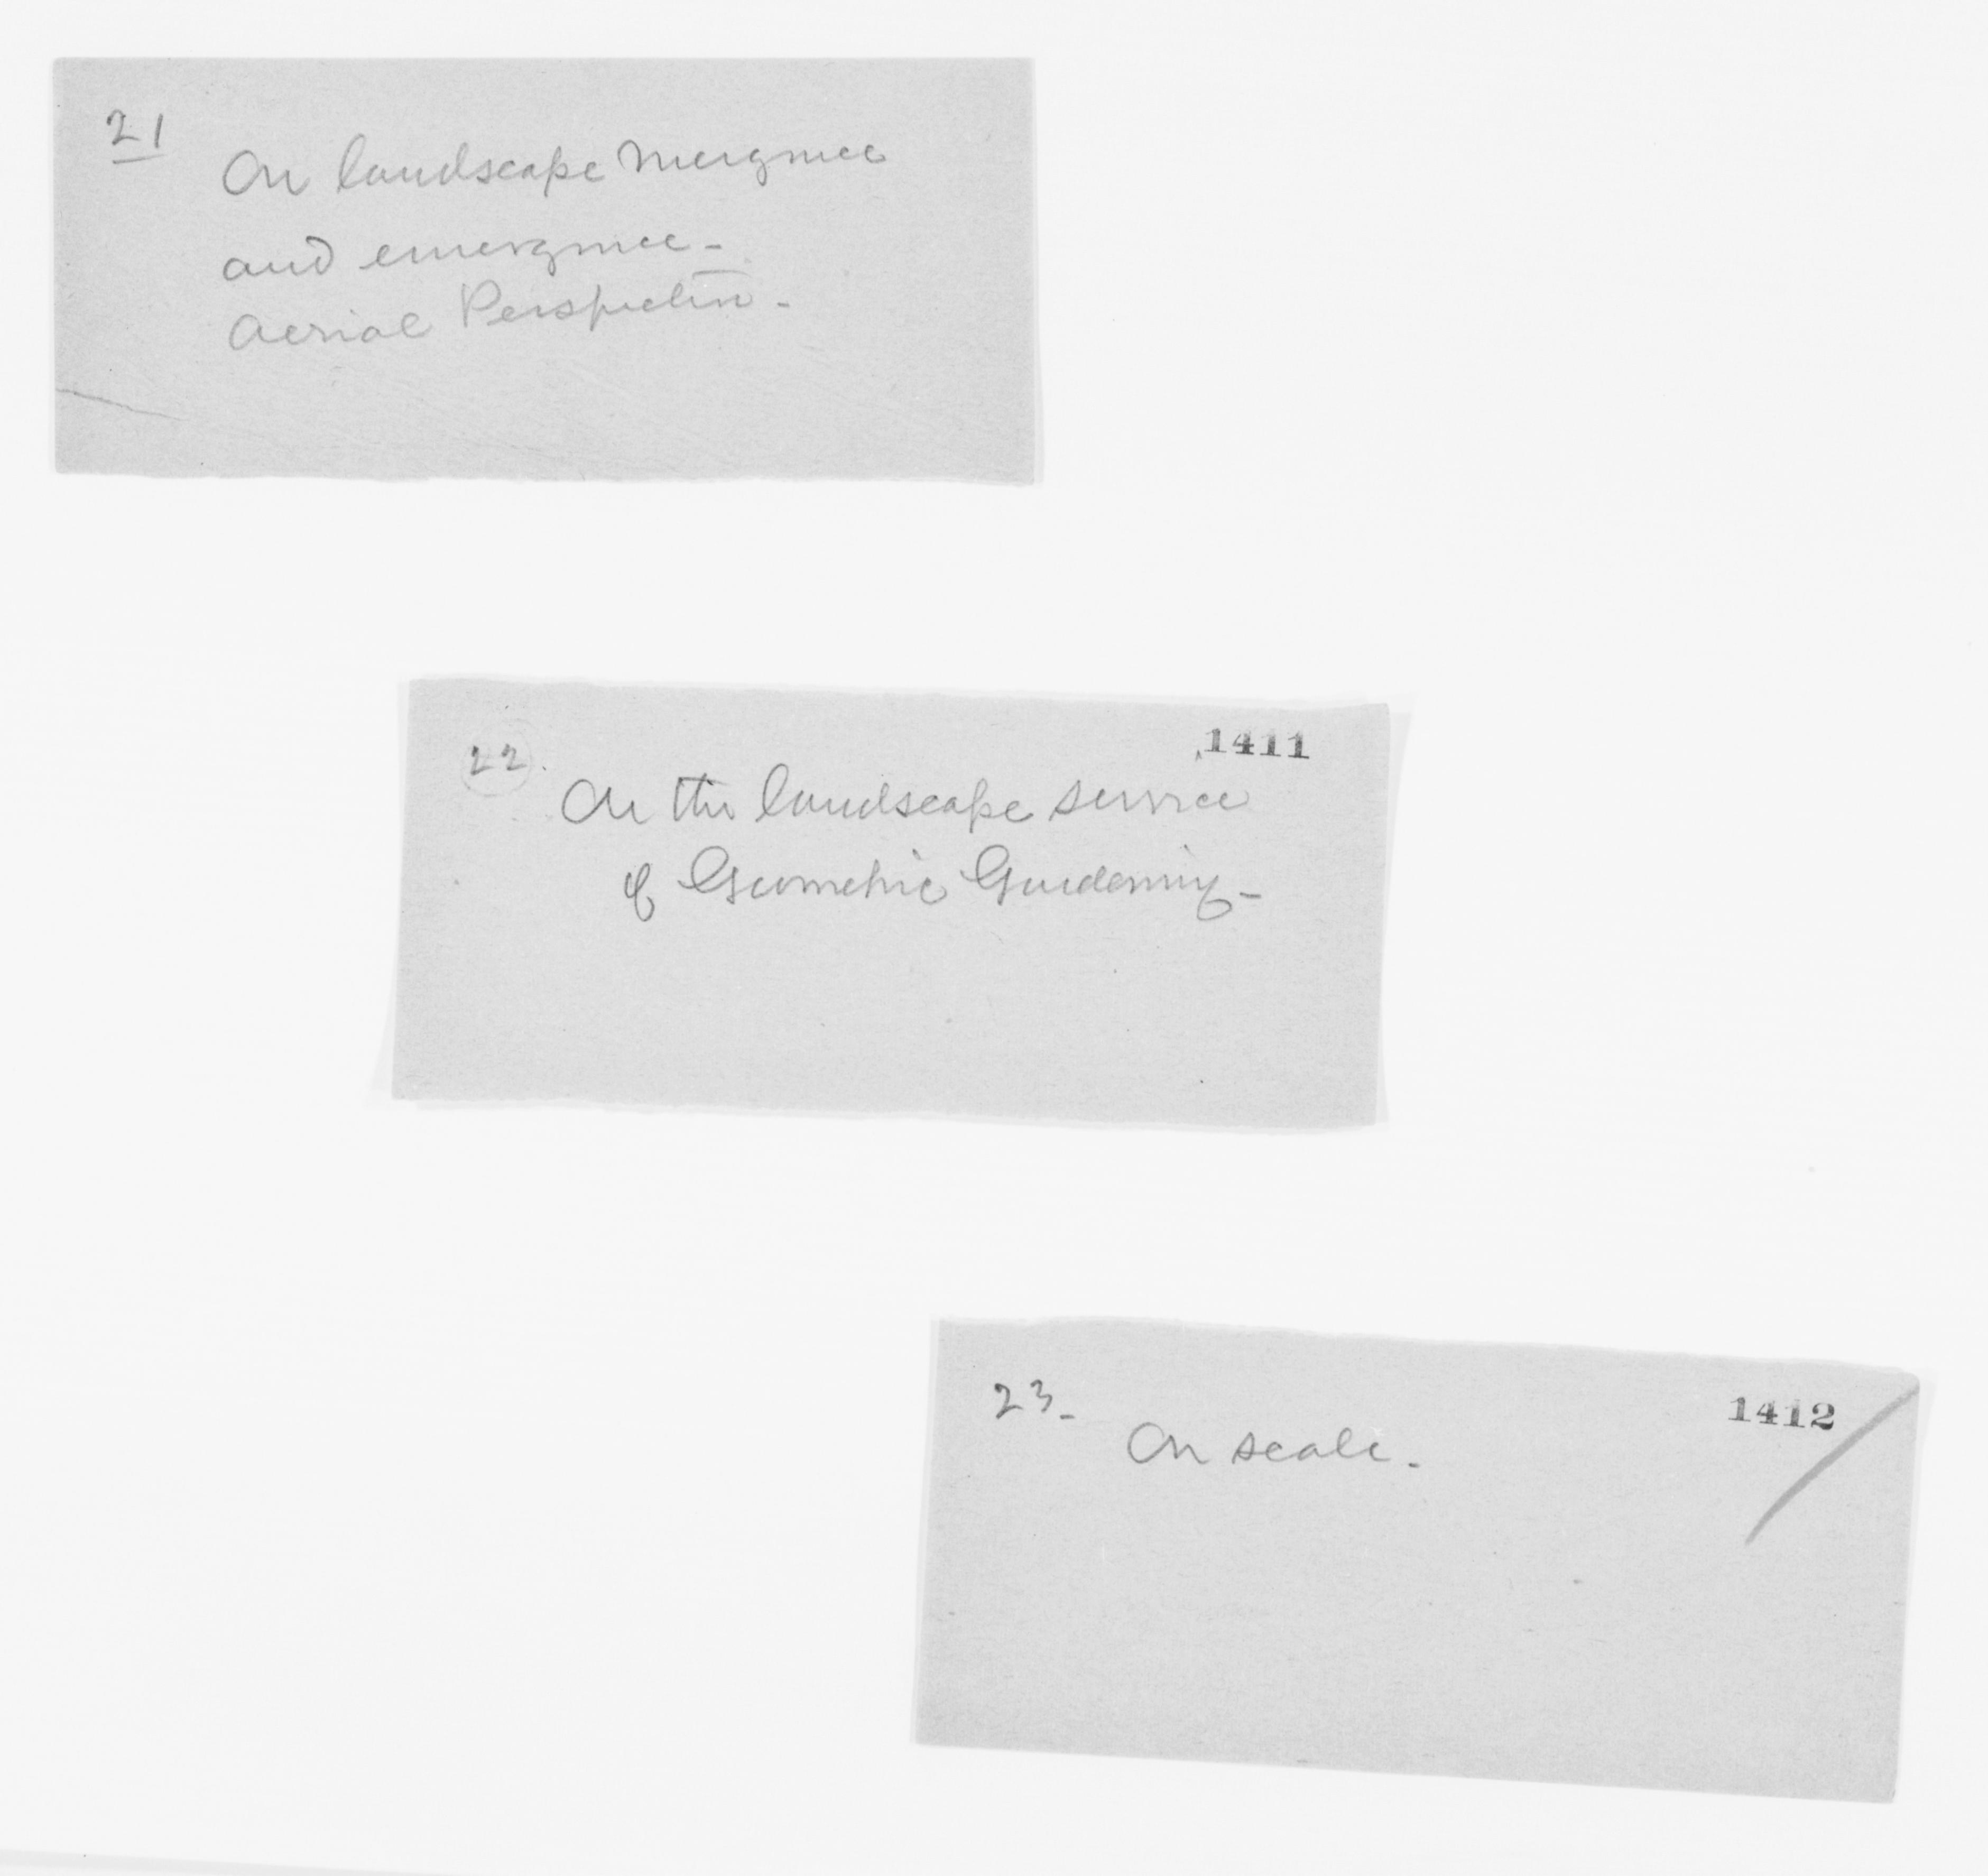 21
On landscape Mergence
and emergence -
Aerial Perspective -
1411
22.
On the landscape service
of Geometric Gardening -
1412
23 -
On scale.